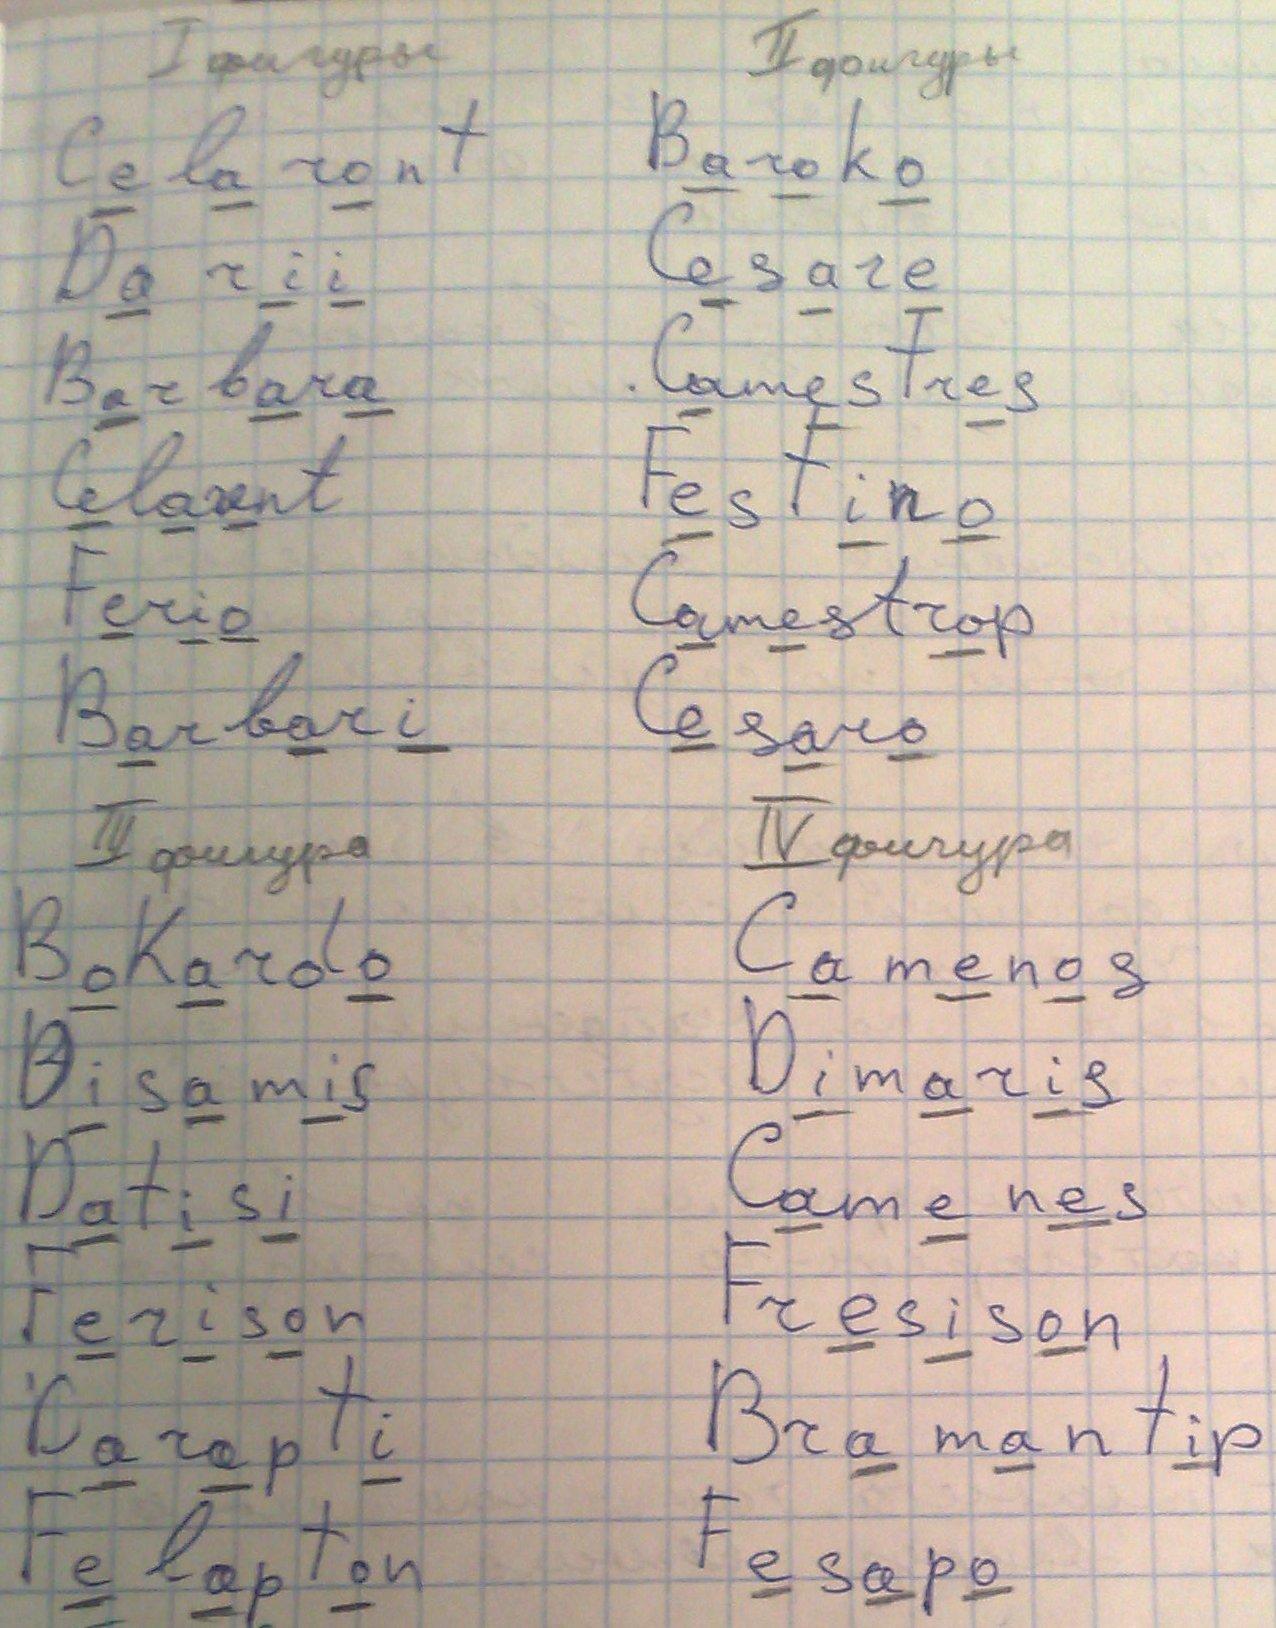 I фигуры
Celaront
Darii
Barbara
Celarent
Ferio
Barbari
II фигуры
Baroko
Cesare
Camestres
Festino
Camestrop
Cesaro
III фигура
Bokardo
Disamis
Datisi
Ferison
Darapti
Felapton
IV фигура
Camenos
Dimaris
Camenes
Fresison
Bramantip
Fesapo